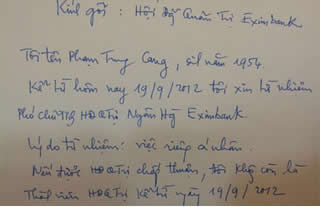 Kính gởi : Hội đg Quản Trị Eximbank
Tôi tên Phạm Trung Cang, sinh năm 1954.
Kể từ hôm nay 19/9/2012 tôi xin từ nhiệm
Phó chủ tịch HĐQTrị Ngân Hg Eximbank.
Lý do từ nhiệm: việc riêng cá nhân.
Nếu được HĐQTrị chấp thuận, tôi không còn là
Thành viên HĐQTrị Kể từ ngày 19/9/2012